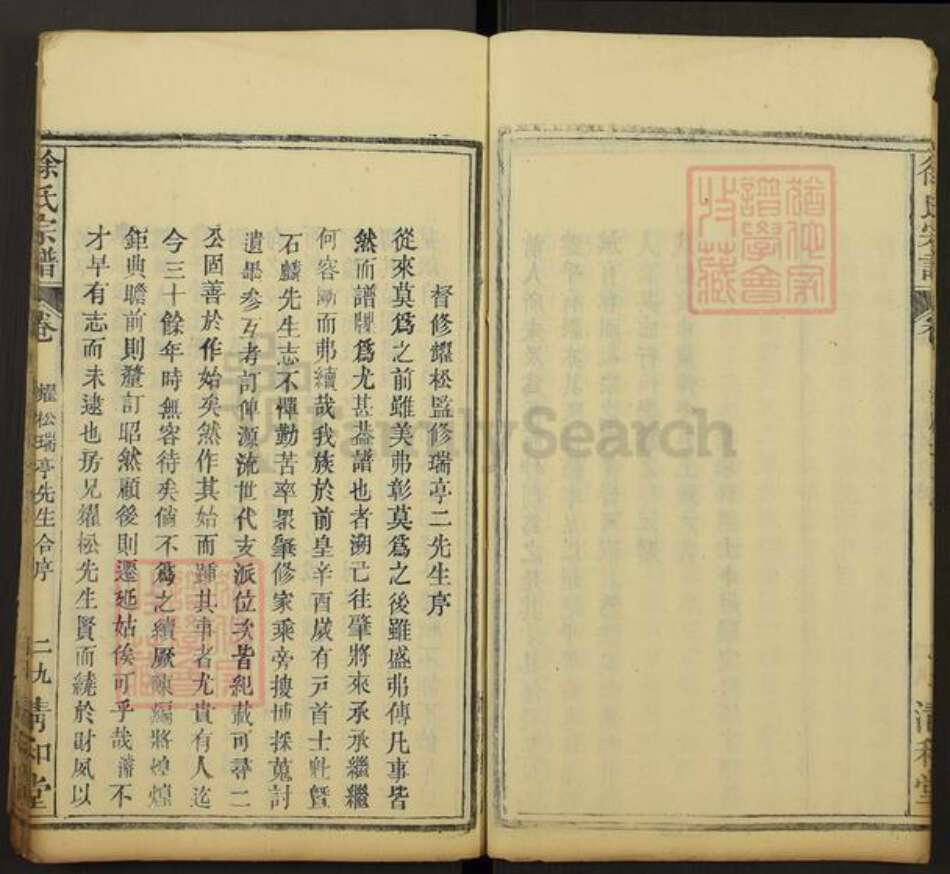 督修耀松監修瑞亭二先生序
從來莫為之前雖美弗彰莫為之後雖盛弗傳凡事皆
然而譜牒為尤甚蓋譜也者溯已往肇將來承承繼繼
何容斷而弗續哉我族於前皇辛酉歲有戸首士
石麟先生志不憚勤苦率眾肇修家乘旁搜博採蒐討
遺參互考訂俾源流世代支派位次皆紀載可尋二
公固善於作始矣然作其始而踵其事者尤貴有人迄
今三十餘年時無容待矣倘不為之續厥編將煌煌
鉅典瞻前則釐訂昭然顧後則遷延姑俟可乎哉濤不
才早有志而未逮也房兄耀松先生賢而繞於財夙以
徐氏宗譜
卷
耀松瑞亭先生合序
二九
清和堂
猶他家譜學會收藏
FamilySearch